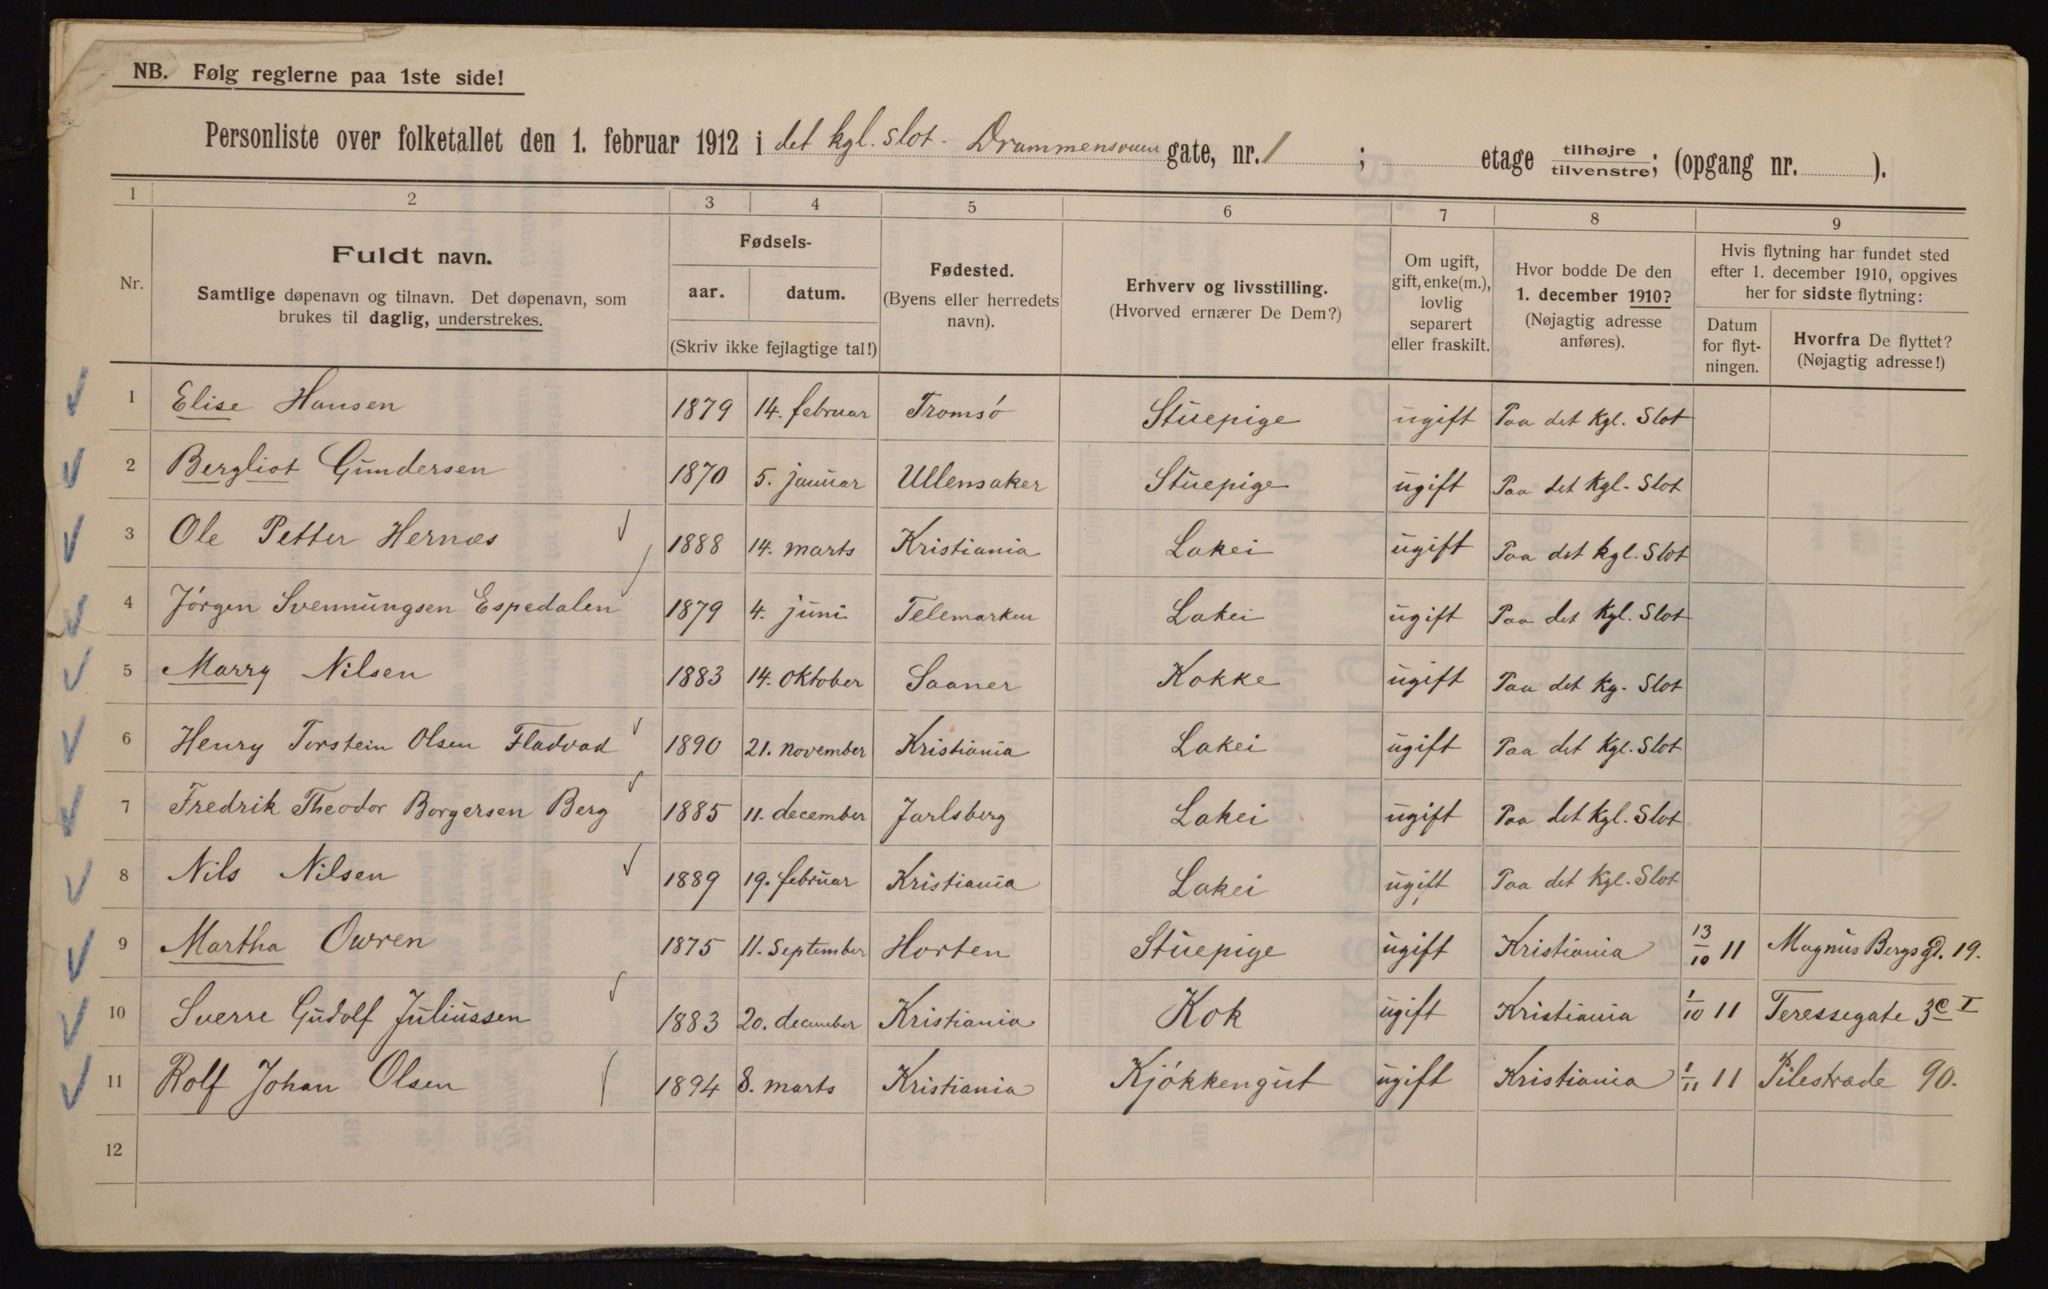 NB. Følg reglerne paa 1ste side!
Personliste over folketallet den 1. februar 1912 i det kgl. slot. Drammensveien gate, nr. 1 ; etage tilhøjre tilvenstre; (opgang nr. ).
1 2 3 4 5 6 7 8 9
Nr.
Fuldt navn.
Samtlige døpenavn og tilnavn. Det døpenavn, som
brukes til daglig, understrekes.
Fødsels-
aar. datum.
(Skriv ikke fejlagtige tal!)
Fødested.
(Byens eller herredets
navn).
Erhverv og livsstilling.
(Hvorved ernærer De Dem?)
Om ugift,
gift, enke(m.),
lovlig
separert
eller fraskilt.
Hvor bodde De den
1. december 1910?
(Nøjagtig adresse
anføres).
Hvis flytning har fundet sted
efter 1. december 1910, opgives
her for sidste flytning:
Datum
for flyt-
ningen.
Hvorfra De flyttet?
(Nøjagtig adresse!)
1 Elise Hansen 1879 14. februar Tromsö Stuepige ugift Paa det Kgl. Slot
2 Bergliot Gundersen 1870 5. januar Ullensaker Stuepige ugift Paa det Kgl. Slot
3 Ole Petter Hernæs 1888 14. marts Kristiania Lakei ugift Paa det kgl. Slot
4 Jörgen Svennungsen Espedalen 1879 4. juni Telemarken Lakei ugift Paa det Kgl. Slot
5 Marry Nilsen 1883 14. oktober Saaner Kokke ugift Paa det Kg. Slot
6 Henry Torstein Olsen Fladvad 1890 21. november Kristiania Lakei ugift Paa det Kgl. Slot
7 Fredrik Theodor Borgersen Berg 1885 11. december Jarlsberg Lakei ugift Paa det Kgl. Slot
8 Nils Nilsen 1889 19. februar Kristiania Lakei ugift Paa det Kgl. Slot
9 Martha Owren 1875 11. September Horten Stuepige ugift Kristiania 13/10 11 Magnus Bergs gd. 19.
10 Sverre Gudolf Juliussen 1883 20. december Kristiania Kok ugift Kristiania 1/10 11 Teressegate 3c I
11 Rolf Johan Olsen 1894 8. marts Kristiania Kjökkengut ugift Kristiania 1/11 11 Pilestrade 90.
12